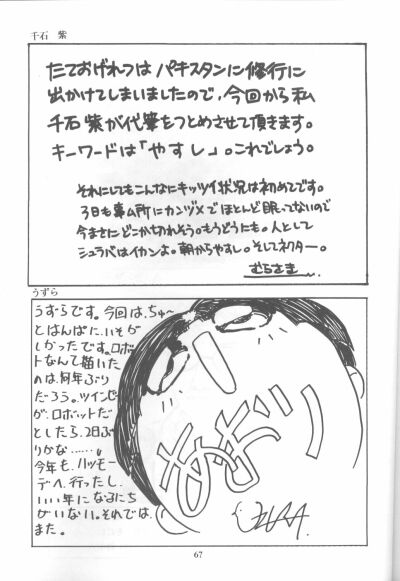 千石 紫
たておげれつはパキスタンに修行に
出かけてしまいましたので、今回から私
千石紫が代筆をつとめさせて頂きます。
キーワードは「やすし」。これでしょう。
それにしてもこんなにキッツイ状況は初めてです。
3日も事ム所にカンヅメでほとんど眠ってないので
今まさにどこか切れそう。もうどうにも。人として
シュラバはイカンよ。朝からやすし。そしてネクター。
むらさま
うずら
うずらです。今回は、ちゅ〜
とはんぱに、いそが
しかったです。ロボッ
トなんて描いた
のは、何年ぶり
だろう。ツインビ
が、ロボットだ
としたら、2日ぶ
りかな……。
今年も、ハッモー
デへ、行ったし、
いい年になるにち
がいない。それでは、
また。
67